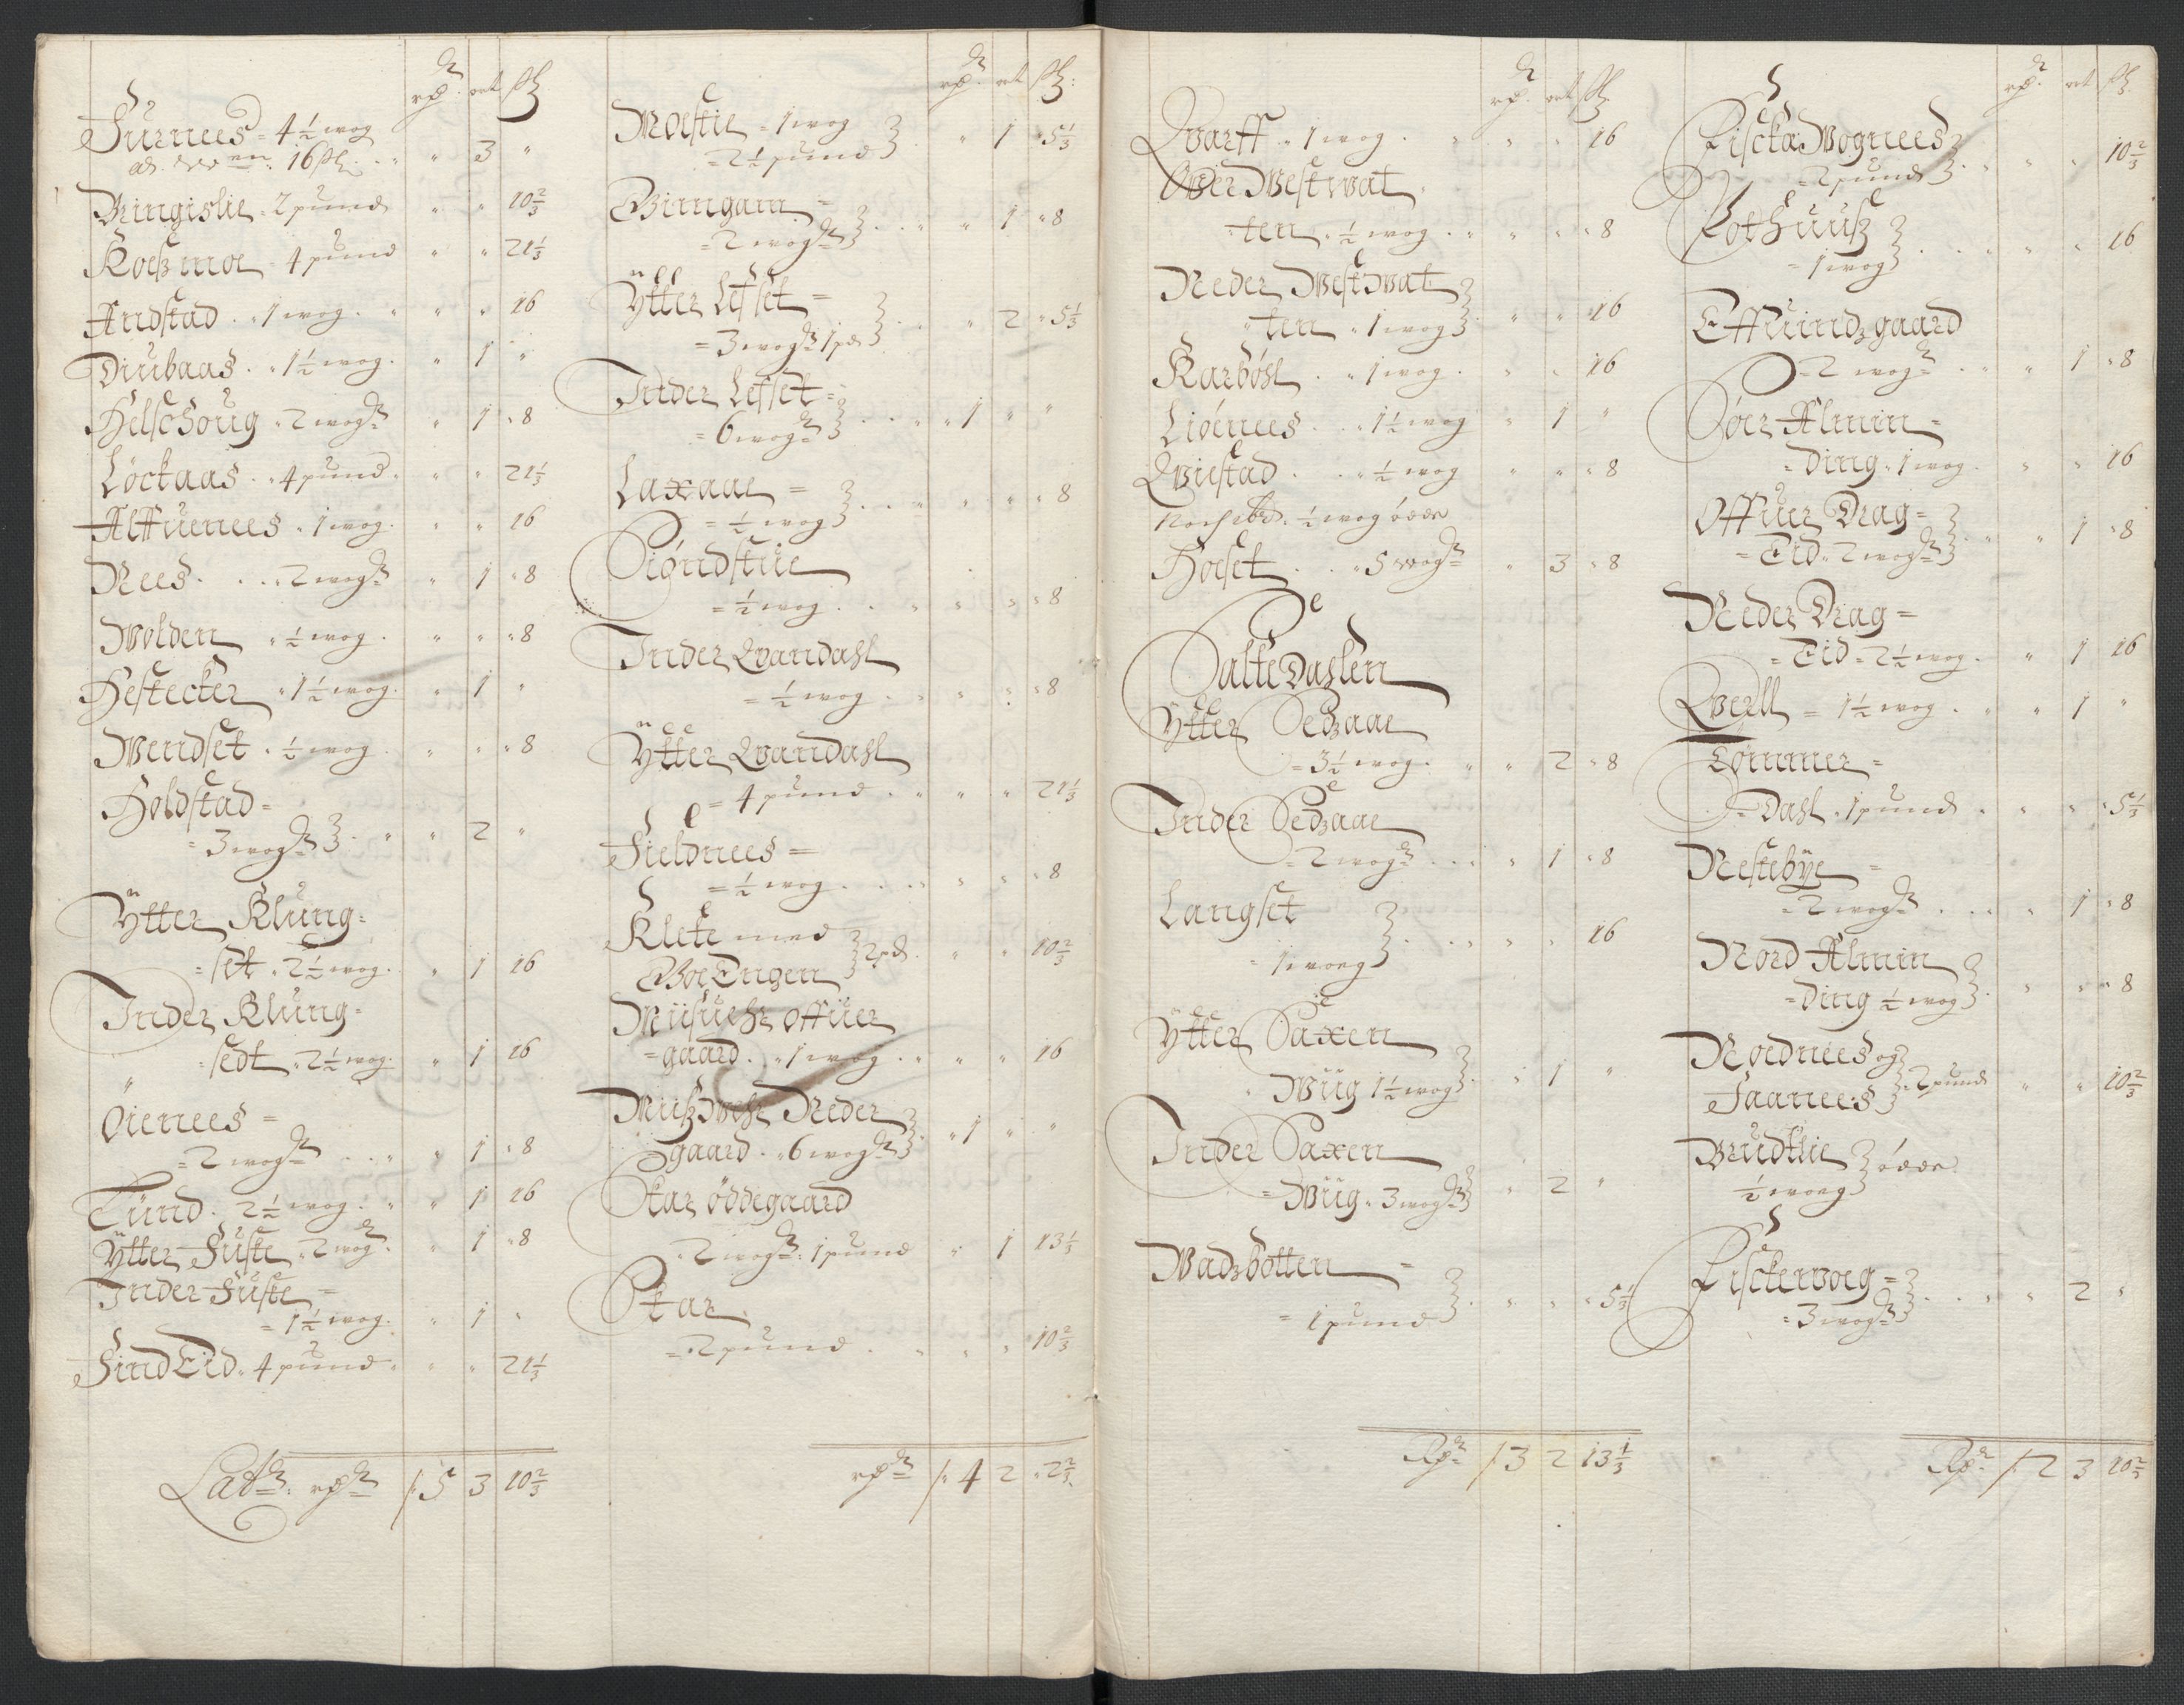 rdr. ort ſk
Furnees = 4 1/2 wog
16 sk. . „ „ 3 „
Bringislie = 2 pund „ „ 10 2/3
Koeszmoe = 4 pund „ „ 21 1/3
Andstad . „ 1 wog . „ „ „ 16
Diubaas . „ 1 1/2 wog . „ 1 „
Helschoug „ 2 wogr „ 1 „ 8
Löckaas . „ 4 pund . „ „ 21 1/3
Alffuenees „ 1 wog . „ „ 16
Nees . . . „ 2 wogr „ 1 „ 8
Wolden „ 1/2 wog . „ „ „ 8
Hestecker „ 1 1/2 wog . „ 1 „
Wendset . 1/2 wog . „ „ „ 8
Holdstad =
= 3 wogr . „ „ 2 „
Ÿtter Klung =
= set „ 2 1/2 wog . „ 1 16
Inder Klung =
= sedt „ 2 1/2 wog . „ 1 16
Öienees =
= 2 wogr . . „ „ 1 „ 8
Tund . 2 1/2 wog . „ „ 1 16
Ÿtter Fuste „ 2 wogr . „ 1 „ 8
Inder Fuste =
= 1 1/2 wog . „ 1 „
Find Eid „ 4 pund „ „ „ 21 1/3
Latr: rdr /: 5 3 10 2/3
rdr. ort ſk:
Moestie = 1 wog
= 2 1/2 pund „ 1 „ 5 1/3
Birngam =
= 2 wogr . . „ „ 1 „ 8
Ÿtter Lefset =
= 3 wogr 1 pd . „ „ 2 „ 5 1/3
Inder Lefset =
= 6 wogr . . „ „ 1 „ „
Laxaae =
= 1/2 wog . . „ „ „ „ 8
Siöndstue
= 1/2 wog . . „ „ „ „ 8
Inder Qvandahl
= 1/2 wog . „ „ „ „ 8
Ÿtter Qvandahl
= 4 pund . „ „ „ 21 1/3
Fieldnees =
= 1/2 wog . . „ „ „ „ 8
Klete med
Boe Engen 2 pd . „ „ 10 2/3
Miusuehr offuer
= gaard . „ 1 wog . „ „ „ 16
Miusz Wehr Neder
gaard . „ 6 wogr . „ 1 „ „
Skar öddegaard
„ 2 wogr : 1 pund „ 1 13 1/3
Skar
= 2 pund . „ „ „ 10 2/3
rdr /: 4 2 „ 2 2/3
rdr. ort ſk
Qvarff „ 1 wog . „ „ „ 16
Over Westvat
= ten „ 1/2 wog . „ „ „ 8
Neder Westwat
ten „ 1 wog „ „ „ 16
Karböhl . „ 1 wog . „ „ 16
Liöenees . . „ 1 1/2 wog „ 1 „
Qviestad . . „ 1/2 wog „ „ „ 8
Noch ibd. 1/2 wog öede
Hoeset . . „ 5 wogr „ 3 „ 8
Saltedahlen
Ÿtter Sedzaae
= 3 1/2 wog . „ „ 2 „ 8
Inder Sedzaae
= 2 wogr . . „ „ 1 „ 8
Langset
= 1 woeg . . „ „ „ 16
Ÿtter Saxen
Wiig 1 1/2 wog . „ 1 „
Inder Saxen
= Wiig „ 3 wogr „ 2 „
Wadzbotten =
= 1 pund . „ „ „ 5 1/3
Rdr /: 3 2 13 1/3
rdr. ort ſk
Fiscka Wognees
= 2 pund . „ „ „ 10 2/3
Rothuusz
= 1 wog . . „ „ „ 16
Effuindzgaard
= 2 wogr . „ „ 1 „ 8
Söer Almin =
= ding „ 1 wog . „ „ 16
Offuer Drag =
= Eid „ 2 wogr . „ „ 1 „ 8
Neder Drag =
= Eid = 2 1/2 wog . „ 1 16
Qvell = 1 1/2 wog . „ „ 1 „
Tömmer =
= Dahl „ 1 pund . „ „ „ 5 1/3
Nestebÿe =
= 2 wogr . . „ „ 1 „ 8
Nord Almin
= ding 1/2 wog . „ „ „ 8
Noednees og
Saanees „ 2 pund „ „ 10 2/3
Brudtlie
1/2 woeg öede
Fisckevoeg =
= 3 wogr . . „ „ 2 „
Rdr /: 2 3 10 2/3